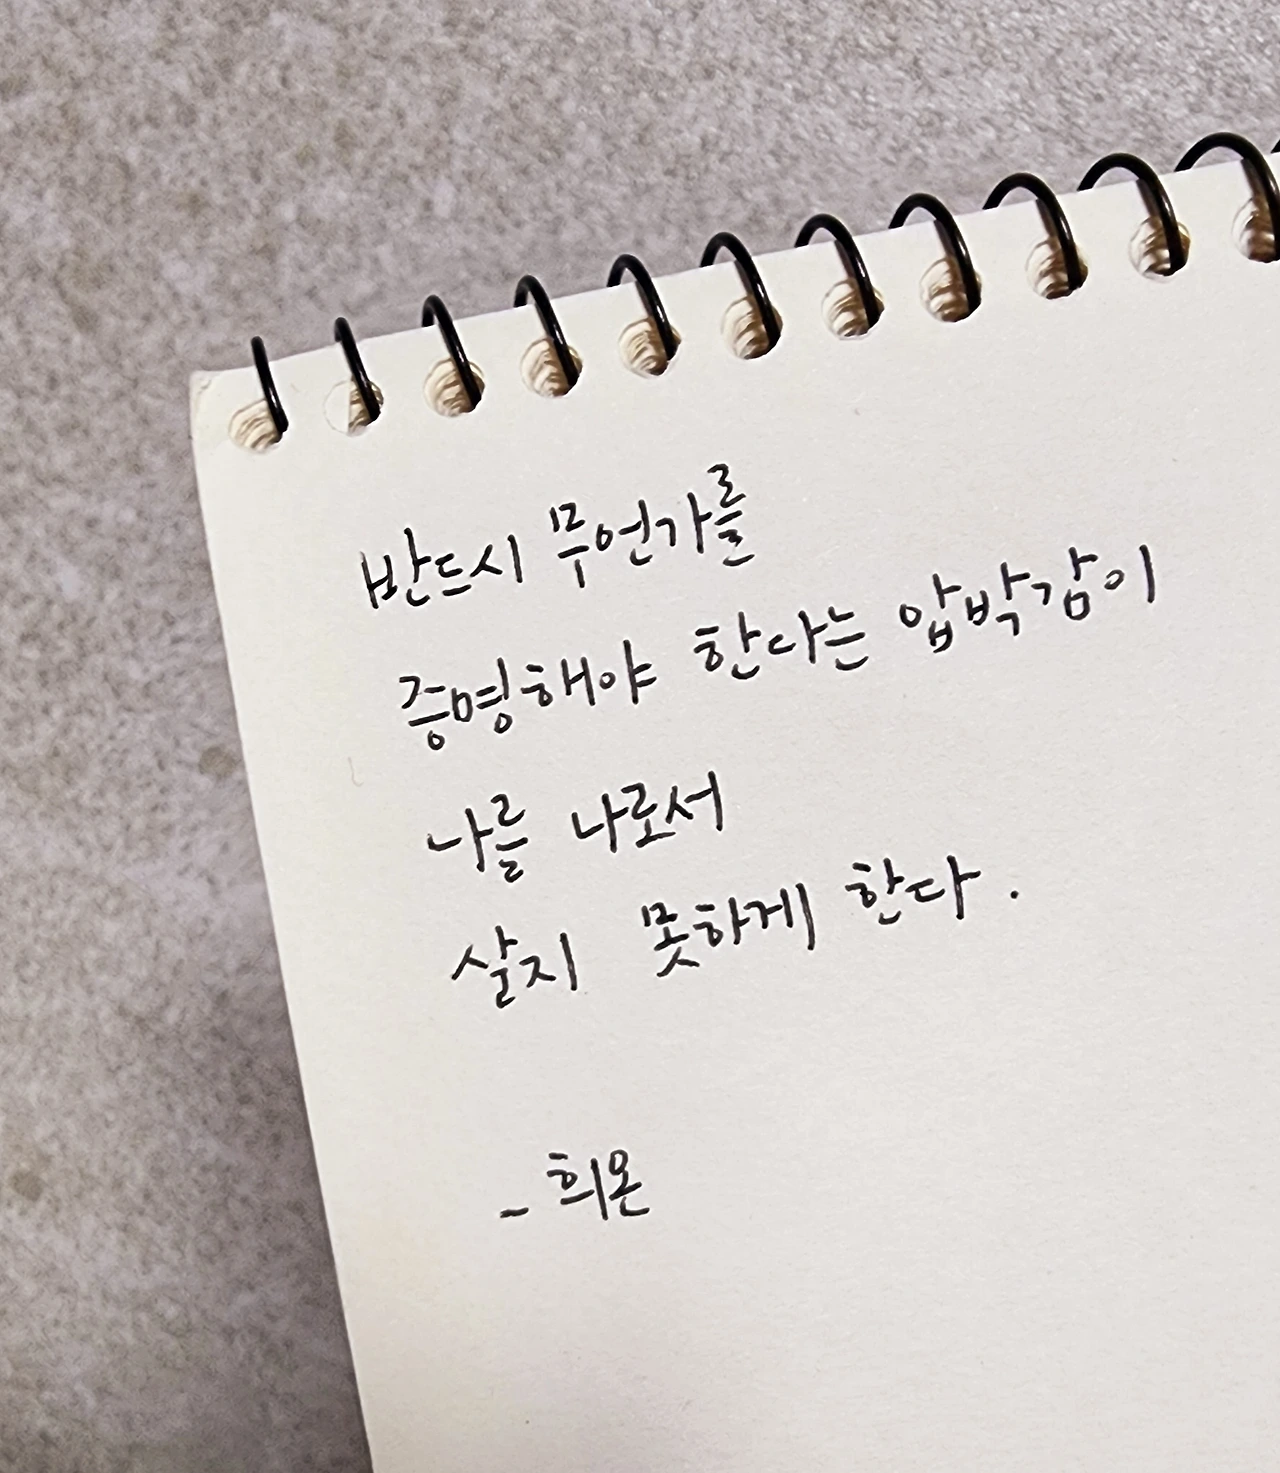 반드시 무언가를
증명해야 한다는 압박감이
나를 나로서
살지 못하게 한다.
- 희온